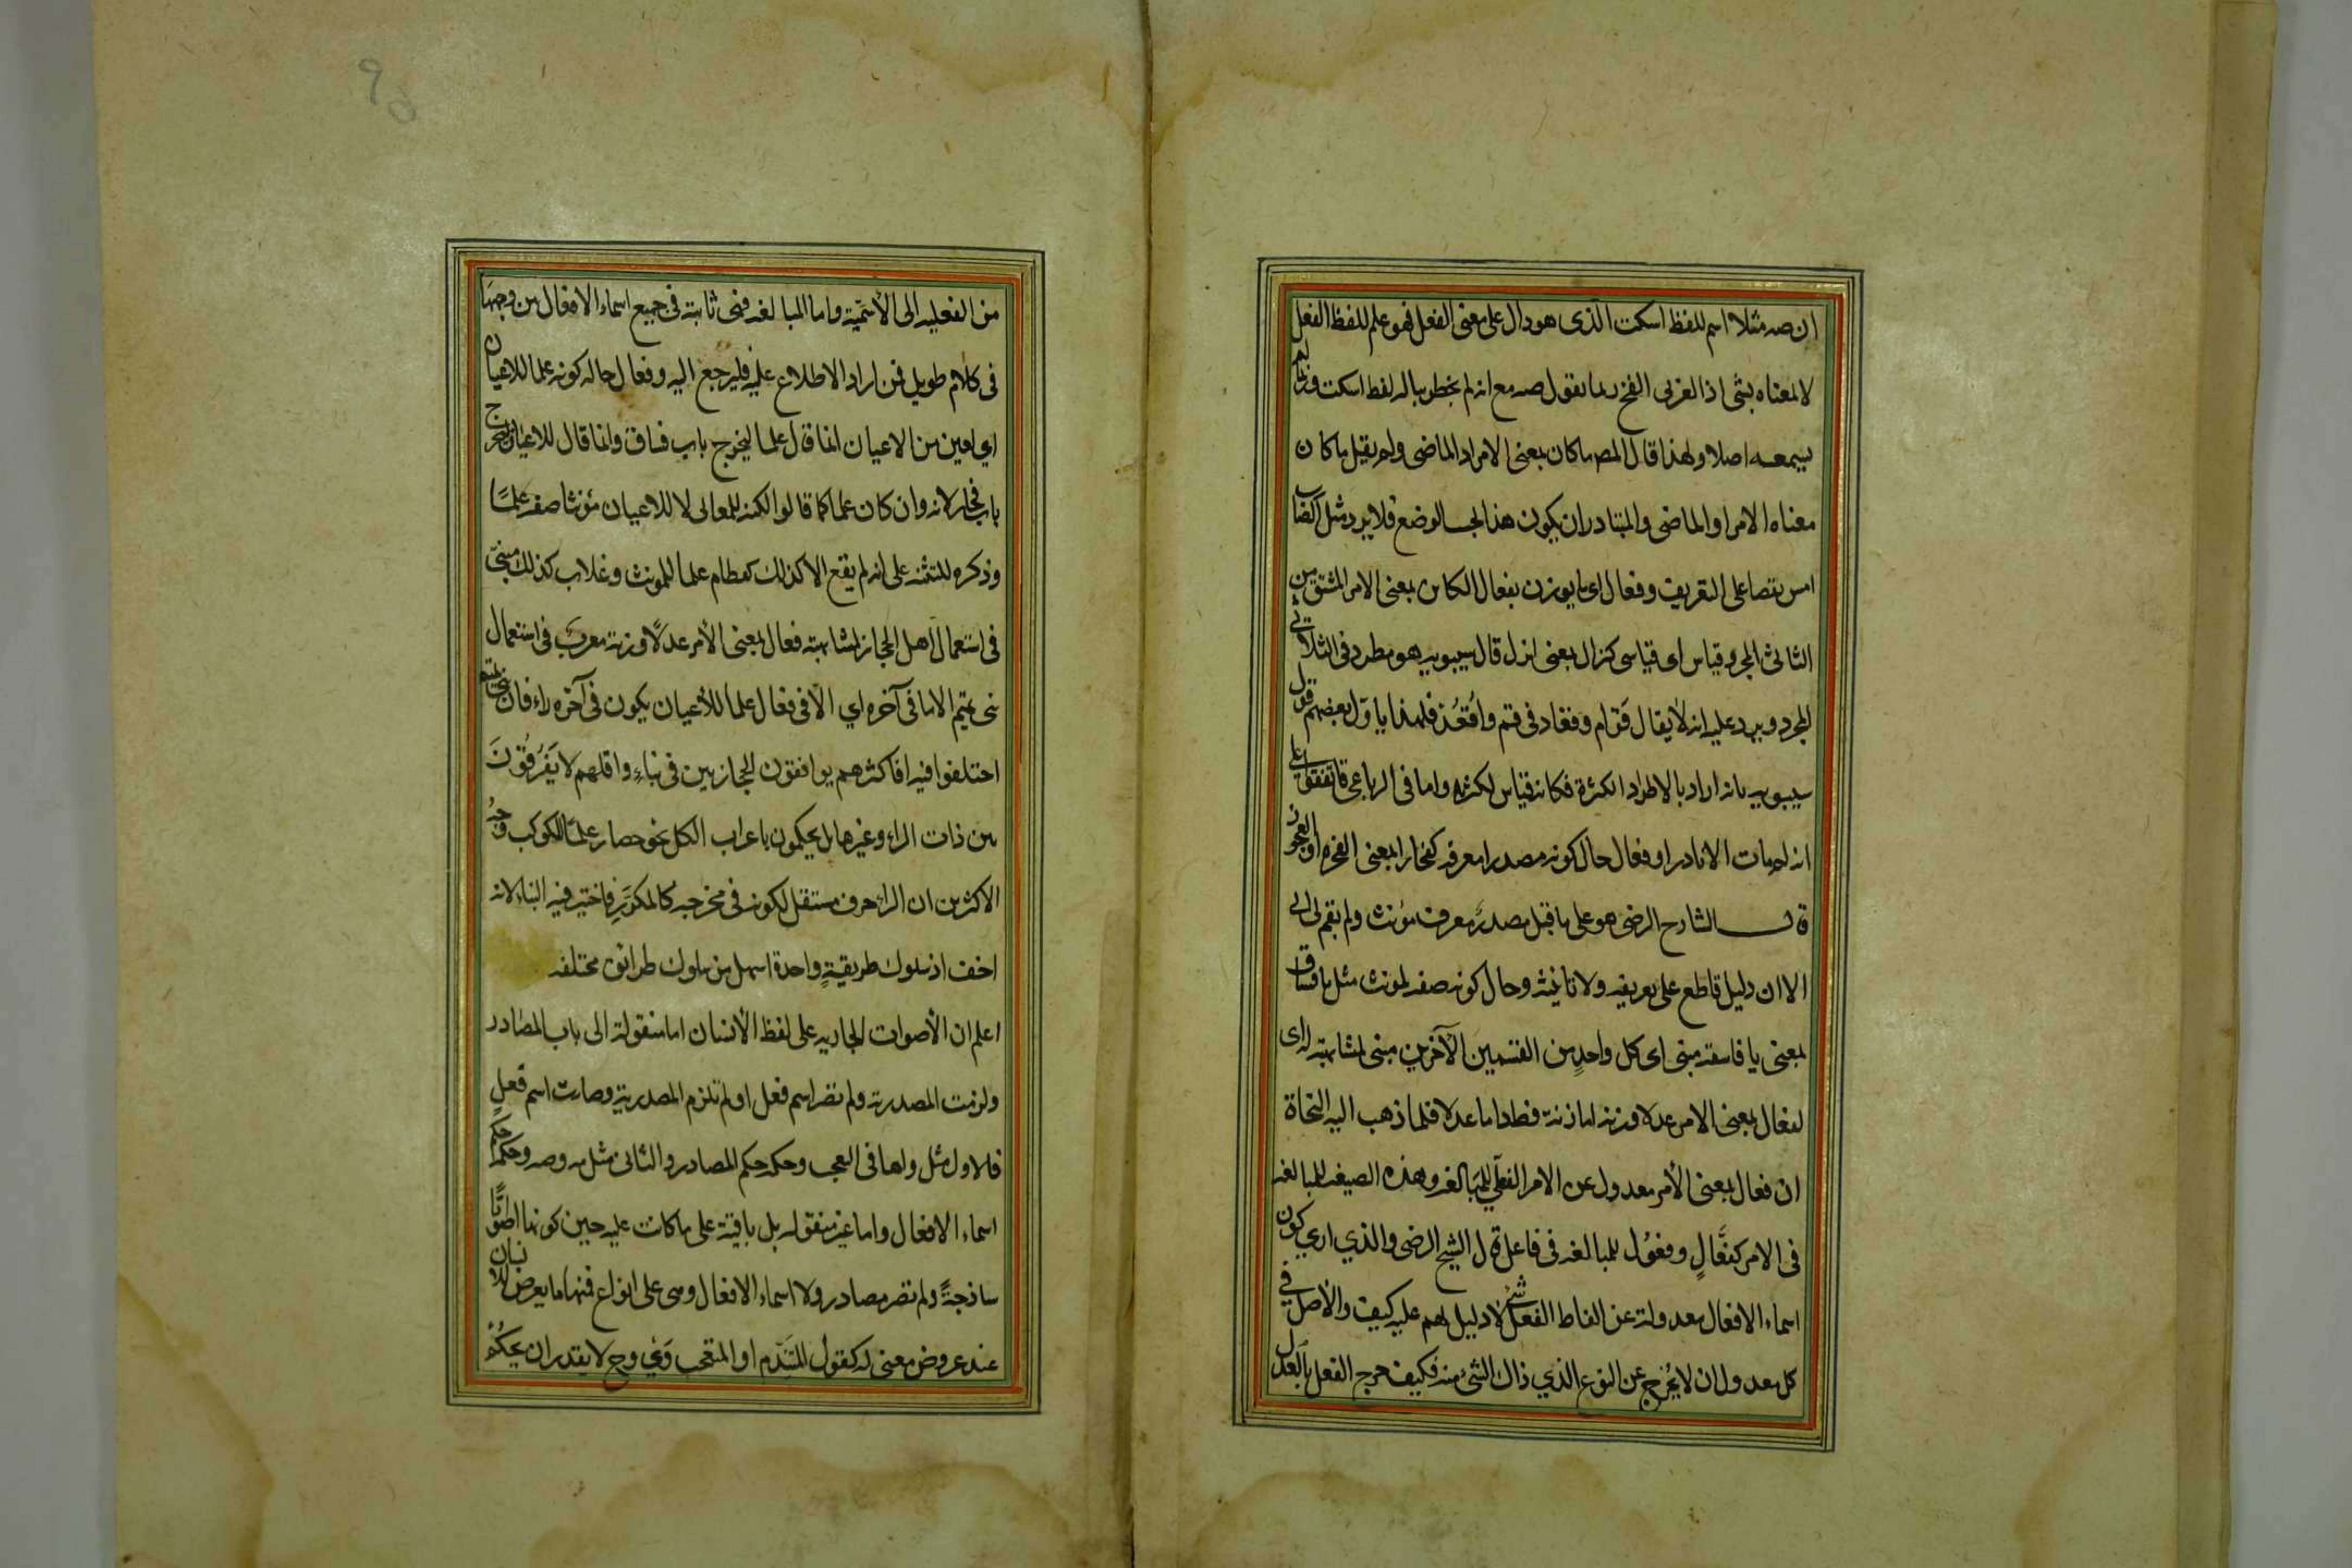 ان صه مثلا اسم للفظ اسكت الذى هو دال على معنى الفعل فهو علم للفظ الفعل
لا لمعناه بشئ اذ العربى القح ربما يقول صه مع انه لم يخطر بباله لفظ اسكت وربما لم
يسمعه اصلا ولهذا قال المصـ ما كان بمعنى الامر او الماضى ولم يقل ما كان
معناه الامر او الماضى والمتبادر ان يكون هذا بحسب الوضع فلا يرد مثل الضارب
امس نقضا على التعريف وفعال اى ما يوزن بفعال الكائن بمعنى الامر المشتق من
الثلاثى المجرد قياس اى قياسى كنزال بمعنى انزل قال سيبويه هو مطرد فى الثلاثى
المجرد ويرد عليه انه لا يقال قَوَّام وقعاد فى قم واقْعُد فلهذا ياوّل بعضهم قول
سيبويه بانه اراد بالاطراد الكثرة فكانه قياس لكثرته واما فى الرباعى فاتفقوا على
انه لم يات الا نادرا وفعال حال كونه مصدرا معرفة كفجار بمعنى الفجرة او الفجور
قال الشارح الرضى هو على ما قيل مصدر معرف مؤنث ولم يقم لى الى
الاان دليل قاطع على تعريفه ولا تانيثه وحال كونه صفة لمونث مثل يا فساق
بمعنى يا فاسقة مبنى اى كل واحدٍ من القسمين الآخرين مبنى لمشابهته له اى
لفعال بمعنى الامر عدلا وزنة اما زنة فظ واما عدلا فلما ذهب اليه النحاة
ان فعال بمعنى الأمر معدول عن الامر الفعلي للمبالغة وهذه الصيغة للمبالغة
فى الامر كفعَّالٍ وفعُول للمبالغة فى فاعل قال الشيخ الرضى والذي ارى كون
اسماء الافعال معدولة عن الفاظ الفعل شئ لا دليل لهم عليه كيف والأصل فى
كل معدول ان لا يُخرج عن النوع الذي ذاك الشئ منه فكيف خرج الفعل بالعدل
من الفعلية الى الأسميّة واما المبالغة فهى ثابتة فى جميع اسماء الافعال من وجهها
فى كلام طويل فمن اراد الاطلاع عليه فليرجع اليه وفعال حال كونه علما للاعيان
اي لعين من الاعيان انما قال علما ليخرج باب فساق وانما قال للاعيان ليخرج
باب فجار لانه وان كان علما كما قالوا لكنه للمعانى لا للاعيان مؤنثا صفة علمًا
وذكره للتنبيه على انه لم يقع الا كذلك كقطام علما للمونث وغلاب كذلك مبنىّ
فى استعمال اهل الحجاز لمشابهته فعال بمعنى الأمر عدلًا وزنة معرب فى استعمال
بنى تميم الا ما فى آخره اي الّا فى فعال علما للأعيان يكون فى آخره راء فان بنى تميم
اختلفوا فيه فاكثرهم يوافقون الحجازيين فى بنائه واقلهم لا يَفْرُقُونَ
بين ذات الراء وغيرها بل يحكمون باعراب الكل نحو حضار علمًا لكوكب وجهُ
الاكثرين ان الراء حرف مستثقل لكونه فى مخرجه كالمكرّرِ فاختير فيه البناء لانه
اخف اذ سلوك طريقةٍ واحدة اسهل من سلوك طرائق مختلفة
اعلم ان الأصوات الجارية على لفظ الأنسان اما منقولة الى باب المصادر
ولزمت المصدرية ولم تصر اسم فعل او لم تلزم المصدرية وصارت اسم فعلٍ
فلاول مثل واها فى التعجب وحكمه حكم المصادر والثانى مثل مه وصه وحكمه حكم
اسماء الافعال واما غير منقولة بل باقية على ما كانت عليه حين كونها اصواتًا
ساذجةً ولم تصر مصادر ولا اسماء الافعال وهى على انواع فمنها ما يعرض للانسان
عند عروض معنى له كقول المتندّم او المتعجب وَىْ وح لا يقدر ان يحكُم